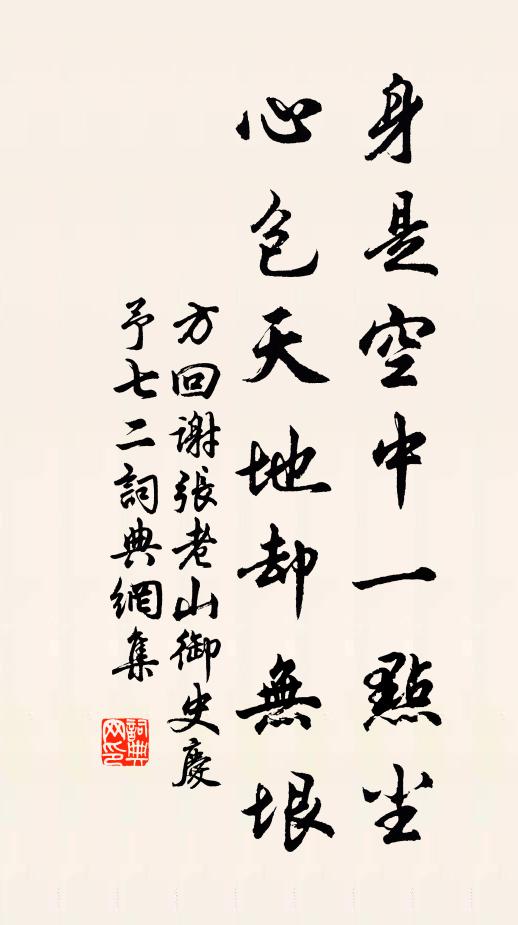 身是空中一點尘
心包天地却無垠
方回謝張老山御史慶
予七二詞典網集
詞典
网印